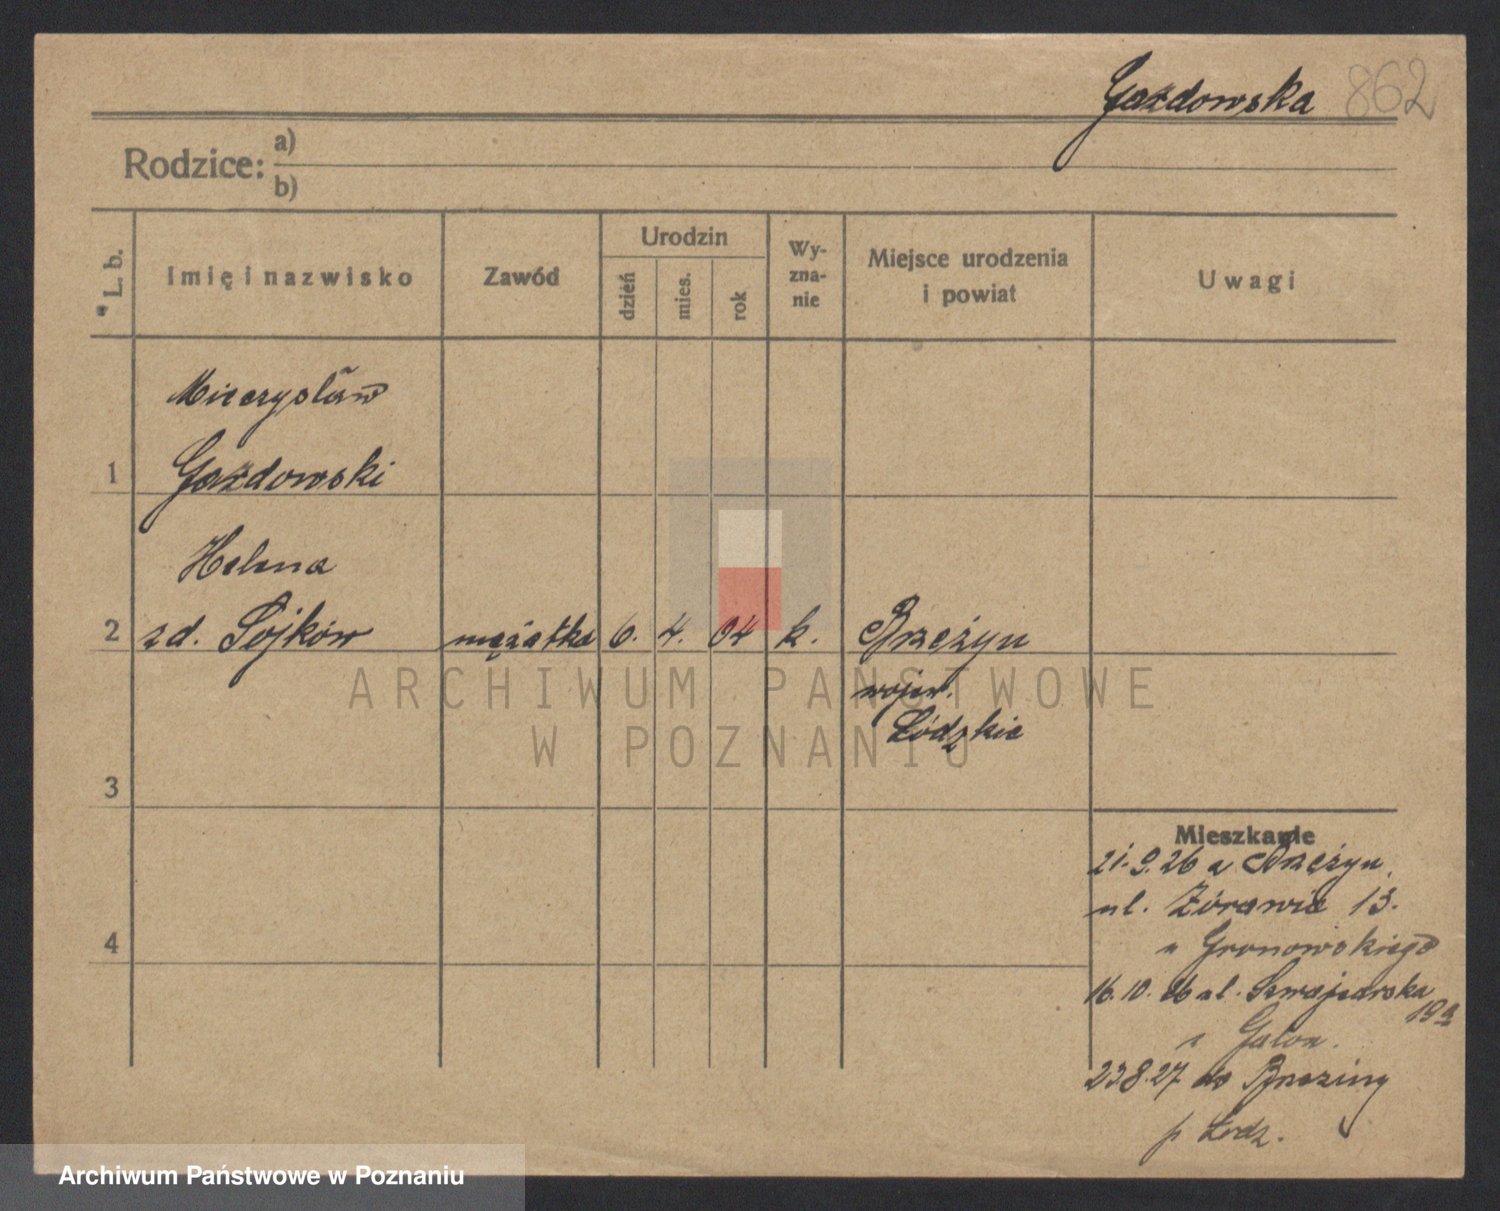 Gażdowska 862
Rodzice: a)
b)
L. b.
Imię i nazwisko
Zawód
Urodzin
dzień
mies.
rok
Wy-
zna-
nie
Miejsce urodzenia
i powiat
Uwagi
Mieczysław
1 Gażdowski
Helena
2 zd. Sojków mężatka 6. 4. 04 k. Brzężyn
wojew.
Łódzkie
3
4
Mieszkanie
21.9.26 z Brzężyn
ul. Żórawia 13.
u Gronowskiego
16.10.26 ul. Szwajcarska
19a
u
23.8.27 do Brzeziny
p Łodz.
ARCHIWUM PAŃSTWOWE
W POZNANIU
Archiwum Państwowe w Poznaniu